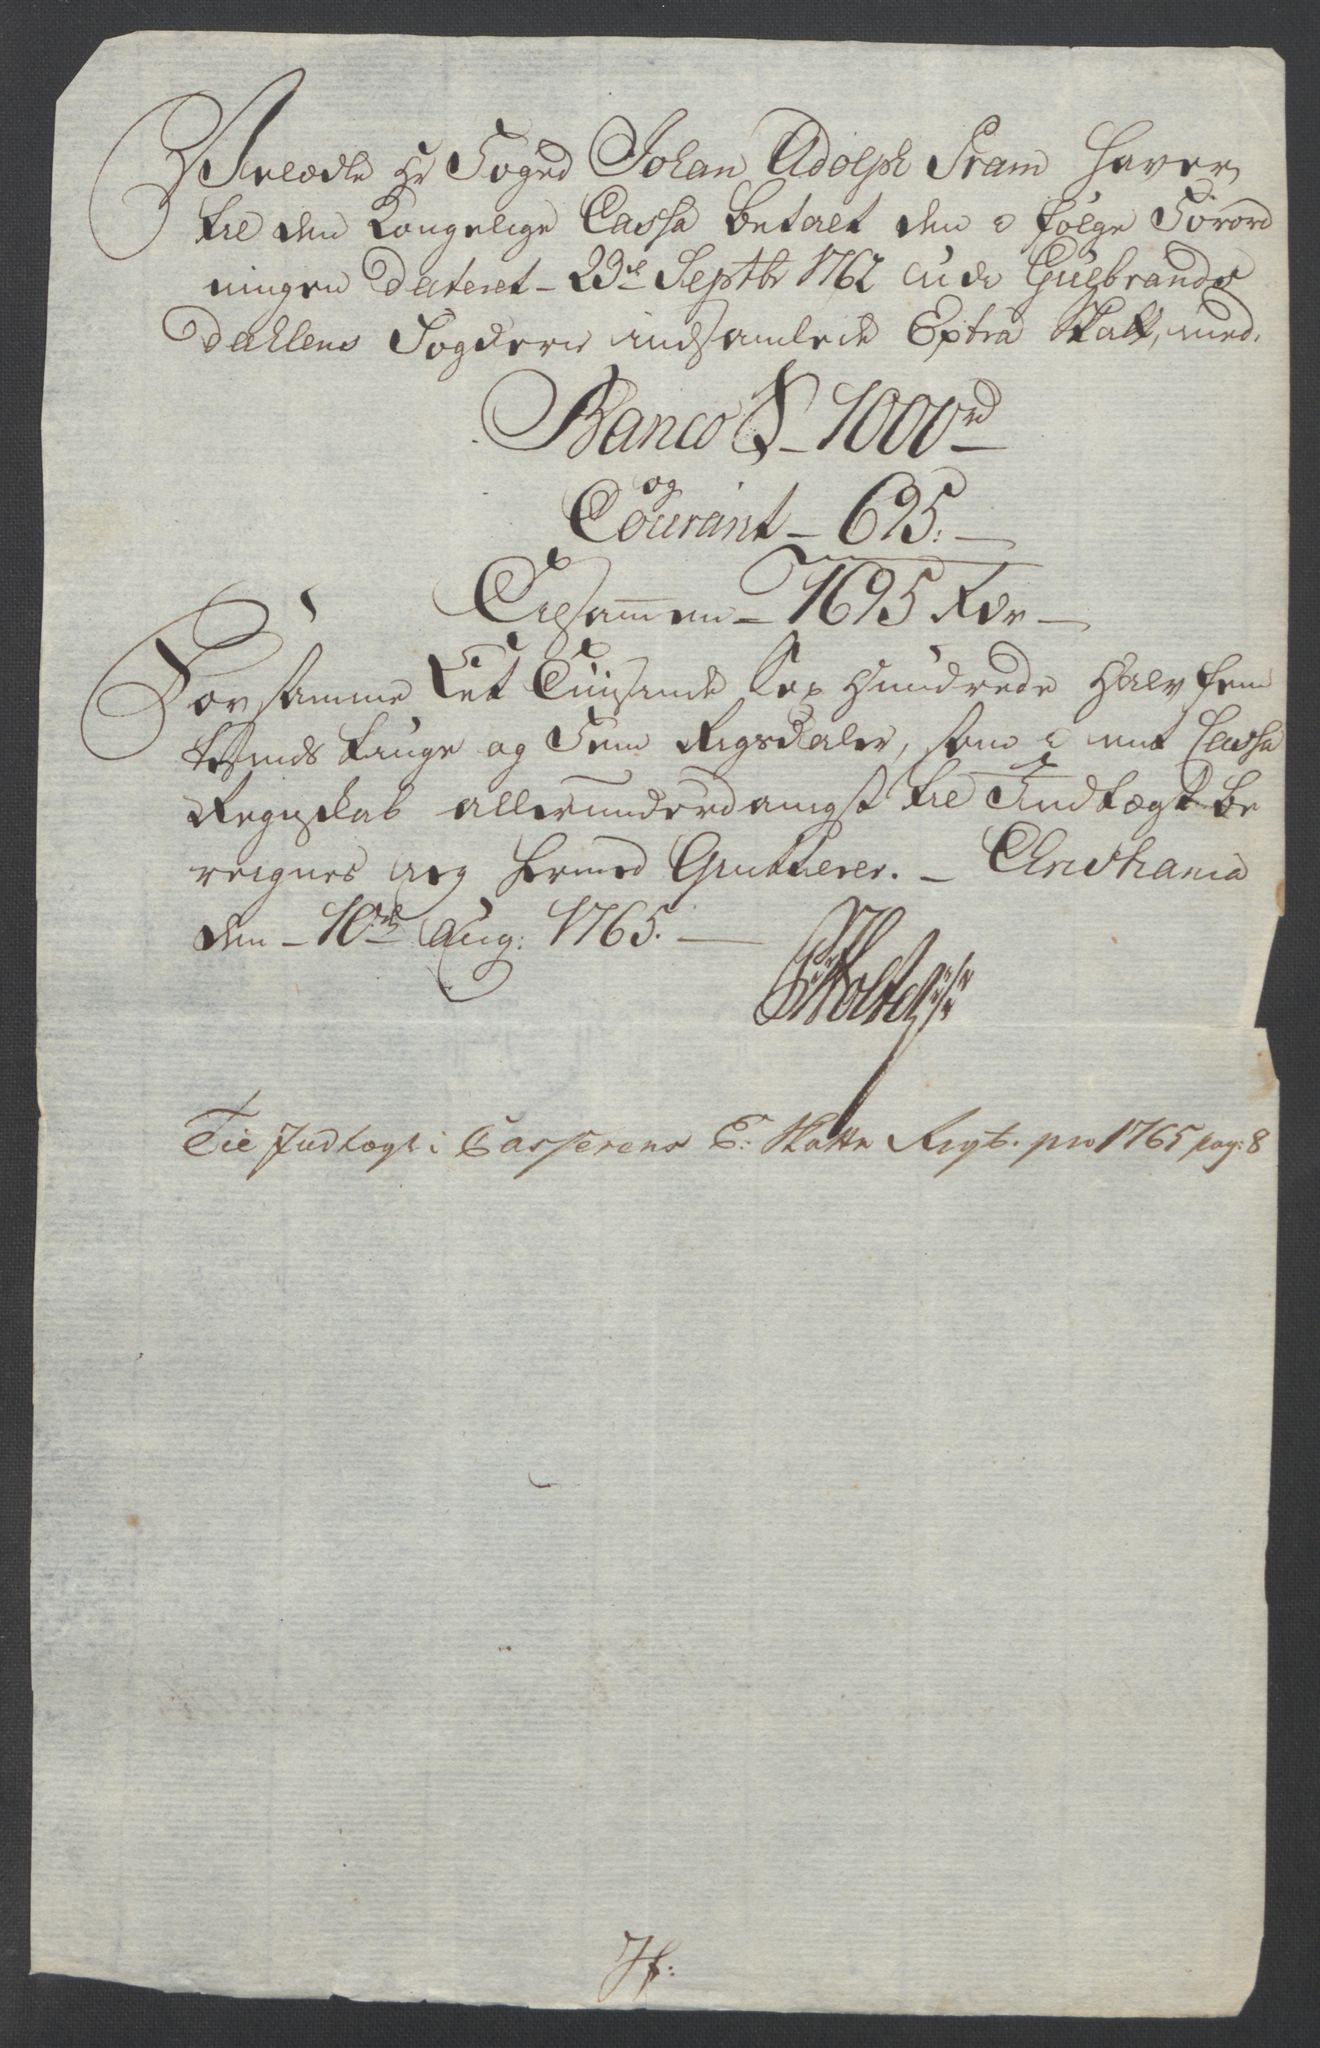 Velædle Hr Foged Johan Adolph Pram haver
til den Kongelige Cassa betalt den i følge Forord
ningen dateret 23de Septbr 1762 udi Gulbrands
dahlens Fogderie indsamlede Extra Skatt, med
Banco S. 1000 rd
og
Courant 695.
Tilsammen 1695 Rdr
For samme Eet Tuusinde Sex Hundrede Halv fem
tesinds tiuge og Fem Rigsdaler, som i mit Cassa
Regnskab allerunderdanigst til Indtægt be
reignes jeg hermed Qvitterer. Christiania
den 10de Aug: 1765.
PHolter
Til Indtægt i Casserens E: Skatte Regtb. pro 1765 pag: 8